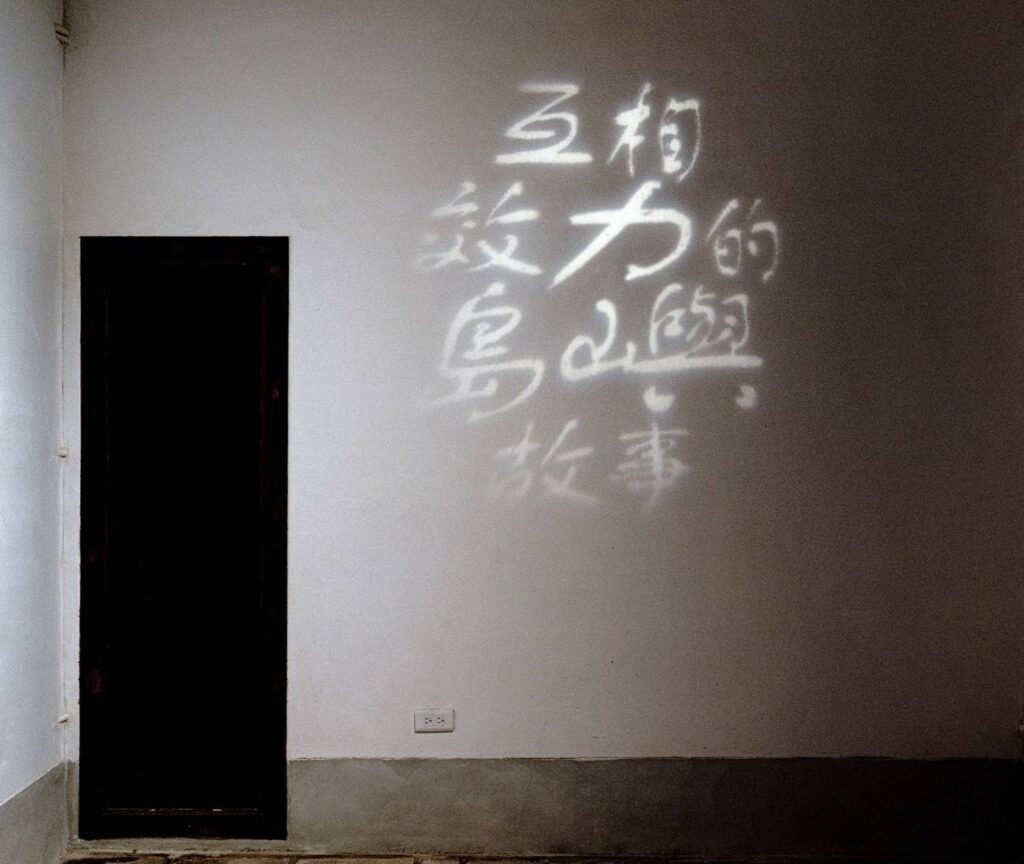 互相
效力的
島嶼
故事